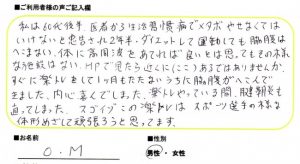 ■ご利用者様の声ご記入欄
私は60代後半 医者から生活習慣病でメタボやせなくては
いけないと忠告され2年半・ダイエットして運動しても脳腹は
へこまない、体に高周波をあてれば良いとは思ってもその様
な施設はない。HPで見たら近くに(ここ)あるではありませんか、
すぐに楽トレをして1ヶ月もたたないうちに脳腹がへこんで
きました、内心喜んでました。楽トレやっている間、腱鞘炎も
直ってしまった。スゴイゾこの楽トレは スポーツ選手の様な
体形めざして頑張ろうと思ってます。
■お名前
O.M
■性別
男性・女性